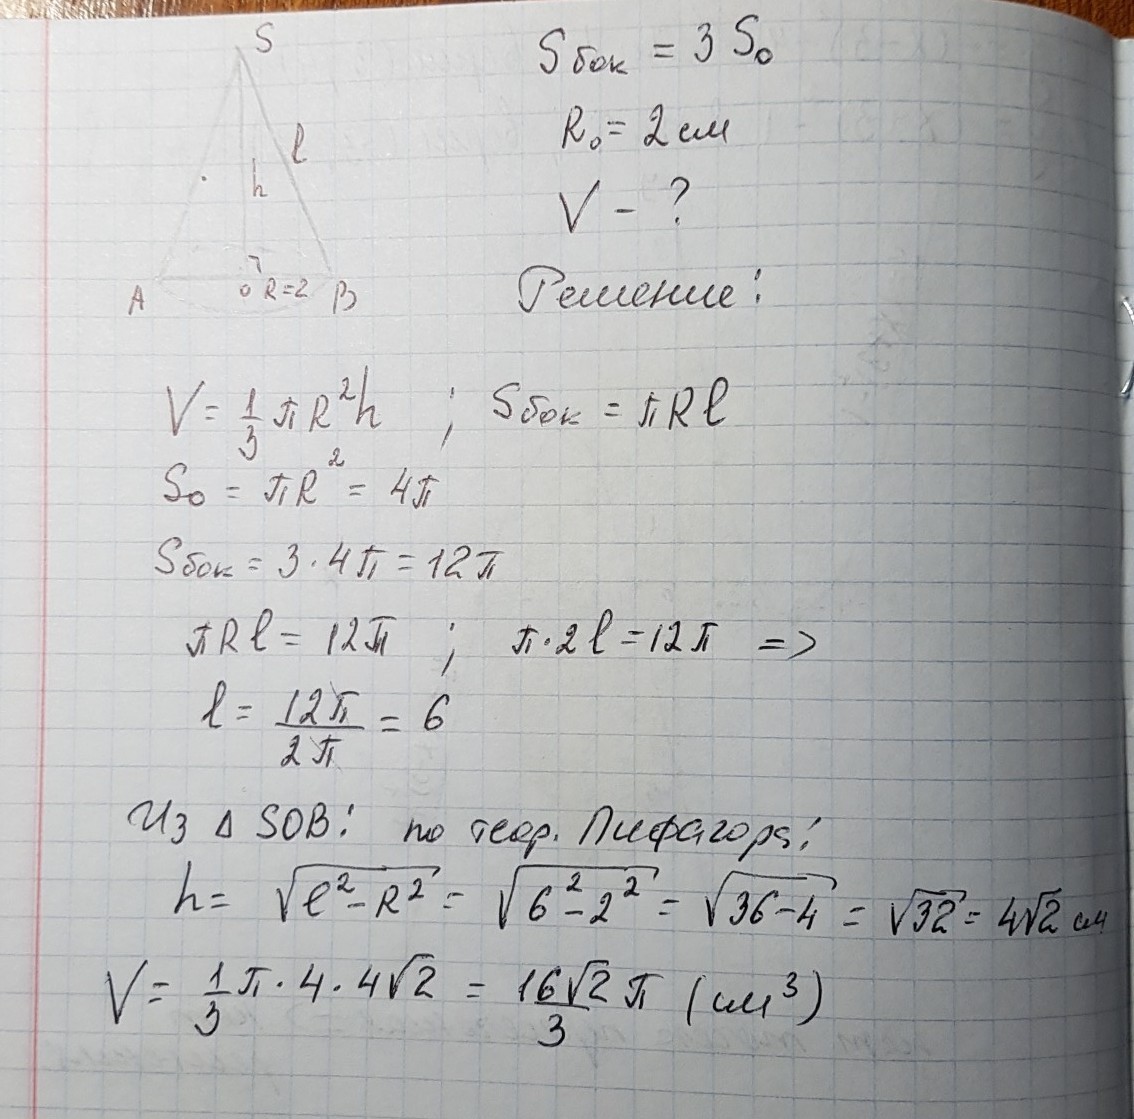 S
l
h
A
O R=2 B
Sбок = 3 S₀
R₀ = 2 см
V - ?
Решение:
V = 1/3 πR²h ; Sбок = πRl
S₀ = πR² = 4π
Sбок = 3·4π = 12π
πRl = 12π ; π·2l = 12π =>
l = 12π/2π = 6
Из Δ SOB: по теор. Пифагора:
h = √(l²-R²) = √(6²-2²) = √(36-4) = √32 = 4√2 см
V = 1/3 π·4·4√2 = 16√2/3 π (см³)